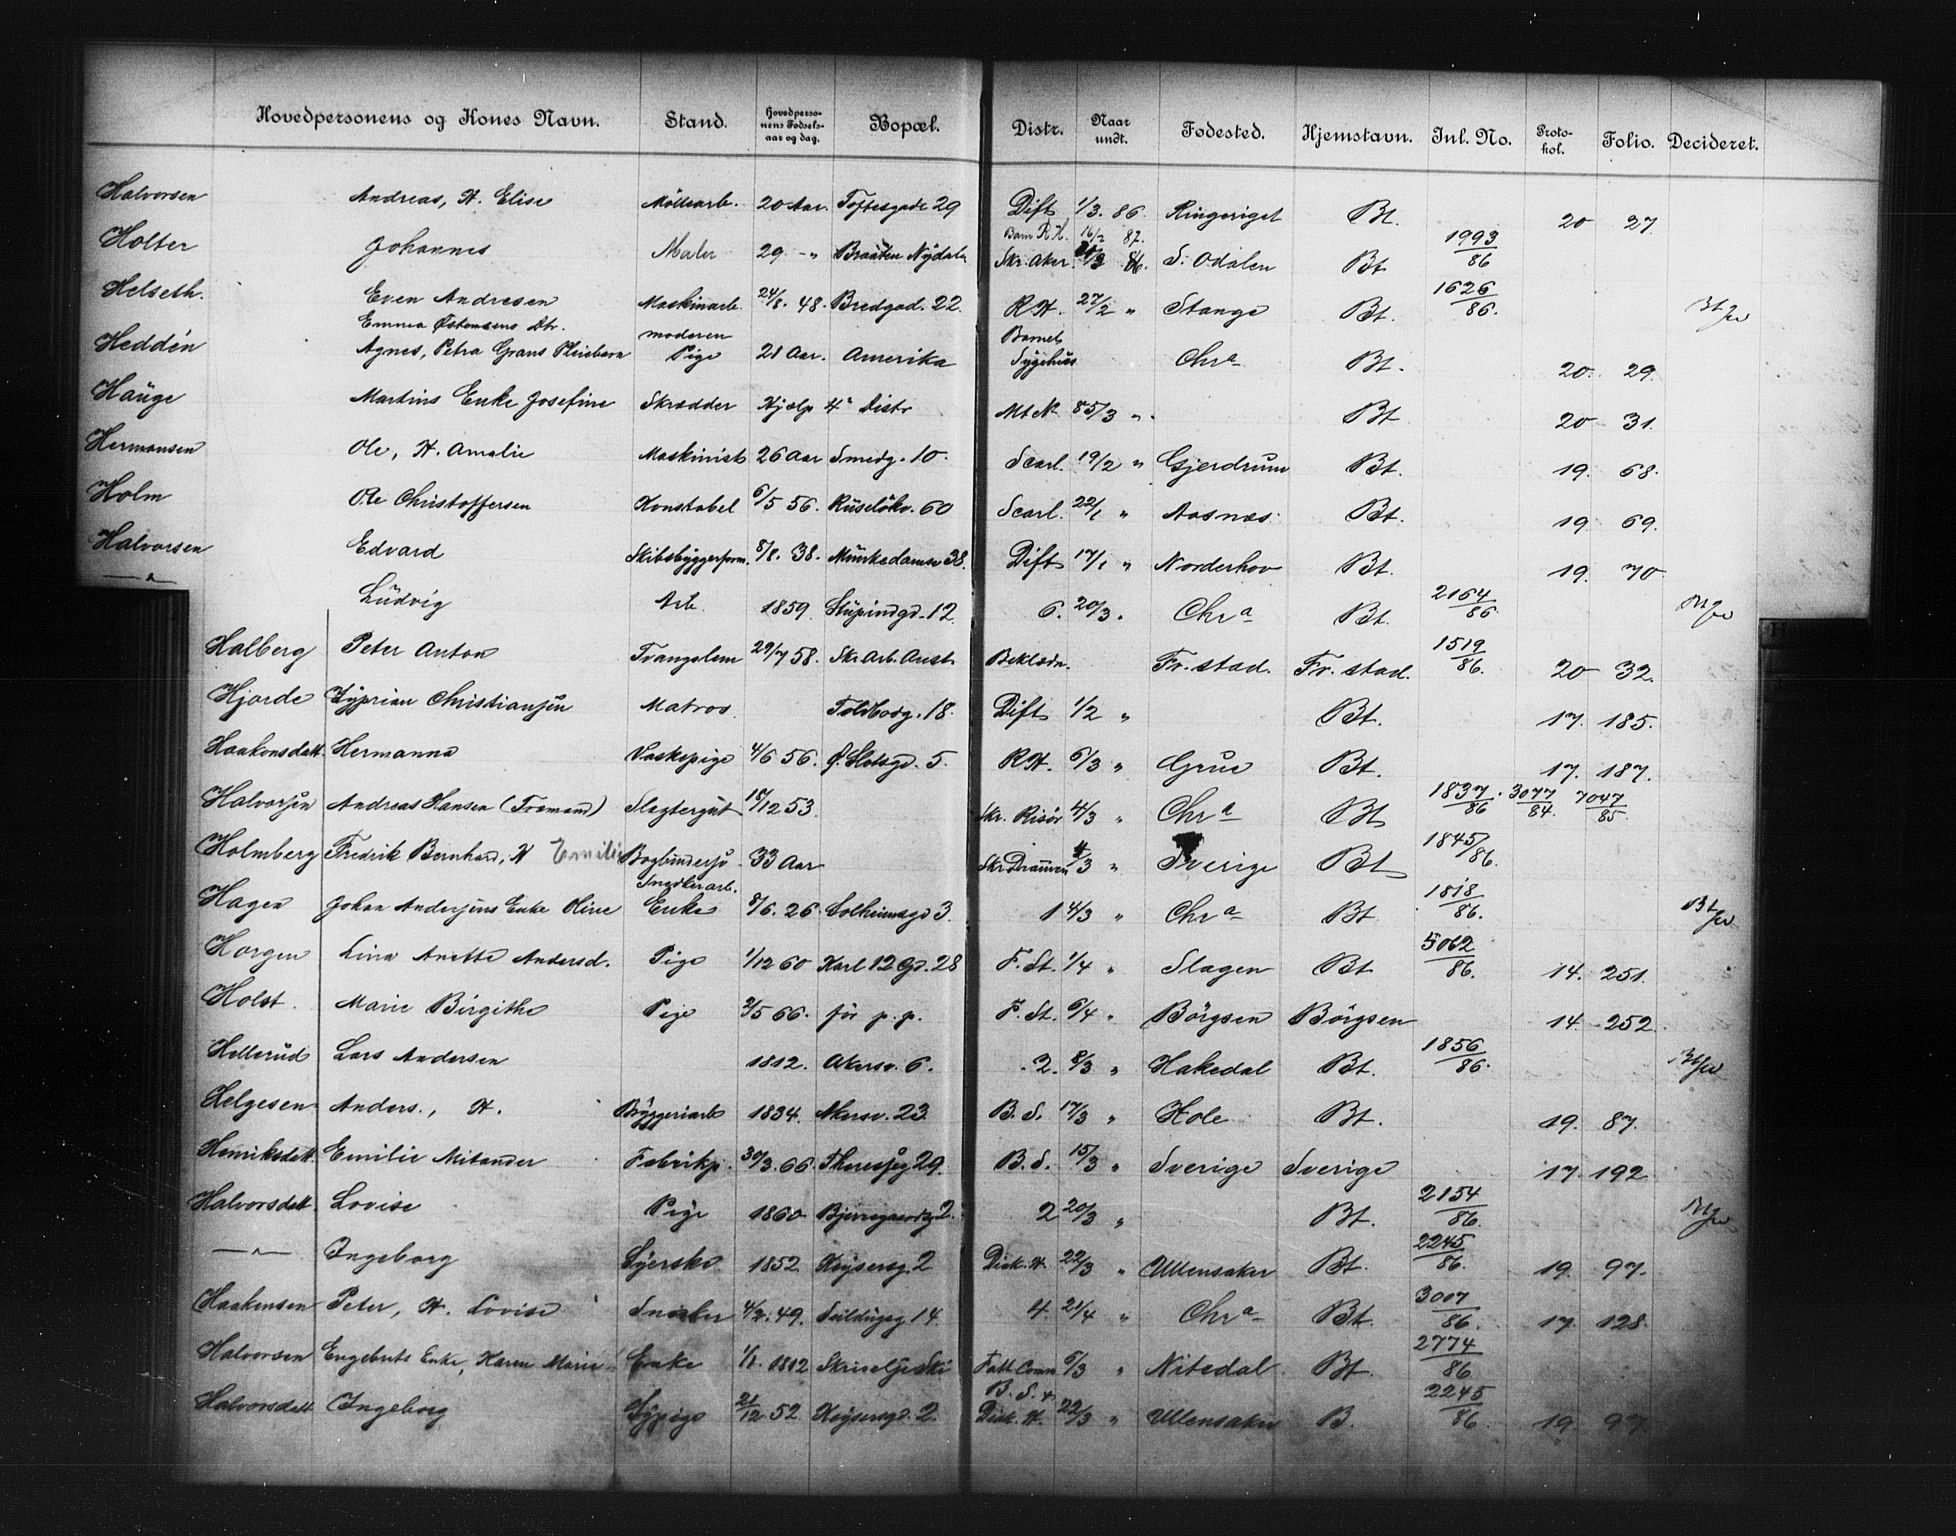 Hovedpersonens og Kones Navn. Stand. Hovedperso-nens Fødsels-aar og dag. Bopæl. Distr. Naar undt. Fødested. Hjemstavn. Inl. No. Proto-kol. Folio. Decideret.
Halvorsen Andreas, H. Elise Møllearb. 20 Aar. Toftesgade 29 Dift 1/3. 86. Ringeriget Bt. 20 27.
Holter Johannes Maler 29 -"- Braaten Nydalen Barn R.H. 16/2 87. Skr. Aker. 86. S. Odalen Bt 1993/86
Helseth. Even Andresen Maskinarb. 24/8. 48. Bredgad. 22. R.H. 27/2 " Stange Bt. 1626/86.
Heddén Emma Østensens Dtr. Agnes, Petra Grans Pleiebarn moderen Pige 21 Aar. Amerika Barnet Sygehus Chra Bt. 20. 29.
Hauge Martins Enke Josefine Skrædder Hjelp 4de Distr 85/3 " Bt 20 31.
Hermansen Ole, H. Amalie Maskinist 26 Aar Smedg. 10. Scarl. 19/2 " Gjerdrum Bt. 19. 68.
Holm Ole Christoffersen Konstabel 6/5 56. Ruseløkv. 60 Scarl. 22/1 " Aasnæs Bt. 19. 69.
Halvorsen Edvard Skibsbyggerform. 8/8. 38. Munkedamsv 38. Dift 17/1 " Norderhov Bt. 19. 70
—"— Ludvig Arb. 1859. Stupindgd. 12. 6. 20/3. " Chra Bt. 2164/86
Halberg Peter Anton Tvangslem 29/7 58. Skr. Arb. Anst. Beklædn. Fr. stad. Fr. stad. 1519/86. 20 32.
Hjorde Zyprian Christiansen Matros Toldbodg. 18. Dift 1/2 " Bt. 17. 185.
Haakonsdatt. Hermanna Vaskepige 4/6 56. Ø. Slotsgd. 5. R.H. 6/3 " Grue Bt. 17. 187.
Halvorsen Andreas Hansen (Tromand) Slagtergut 18/12 53. Skr. Risør 4/3 " Chra Bt 1837/86. 3077/84. 7047/85
Holmberg Fredrik Bernhard, H Emilie Bogbindersv 33 Aar Skr Drammen 4/3 " Sverige Bt 1845/86.
Hagen Johan Andersens Enke Oline Snedkerarb. Enke 8/6. 26. Solheimsgd 3. 1 4/3 " Chra Bt 1818/86.
Horgen Lina Anette Andersd. Pige 1/12 60 Karl 12 Gd. 28 F. St. 1/4 " Slagen Bt 5062/86. 14. 251.
Holst. Marie Birgithe Pige 2/5 66. før p.p. F. St. 6/4 " Børgsen Børgsen 14 252.
Hellerud Lars Andersen 1812. Akersv. 6. 2. 8/3 " Hakedal Bt. 1856/86.
Helgesen Anders., H. Bryggeriarb 1834. Akersv. 23 B. S. 17/3 " Hole Bt. 19. 87.
Henriksdatt. Emilie Mitander Fabrikp. 30/3. 66. Theresesg 29. B. S. 15/3 " Sverige Sverige 17. 192.
Halvorsdatt Lovise Pige 1860 Bjerregaardsg 2. 2 20/3 " Bt. 2154/86.
—"— Ingeborg Syerske 1852 Keysersg. 2 Diak. H. 22/3 " Ullensaker Bt. 2245/86. 19. 97.
Haakensen Peter, H. Lovise Snekker 4/2. 49. Suldugsg 14. 4. 21/4 " Chra Bt. 3007/86. 17. 128.
Halvorsen Engebrets Enke, Karen Marie Enke 1/1. 1812 Ski Fatt Comm 6/3 " Nitedal Bt. 2774/86
Halvorsdatt Ingeborg Sypige 21/12 52 Keysersgd. 2. B. S. & Diak. H. 22/3 " Ullensaker B. 2245/86. 19. 97.